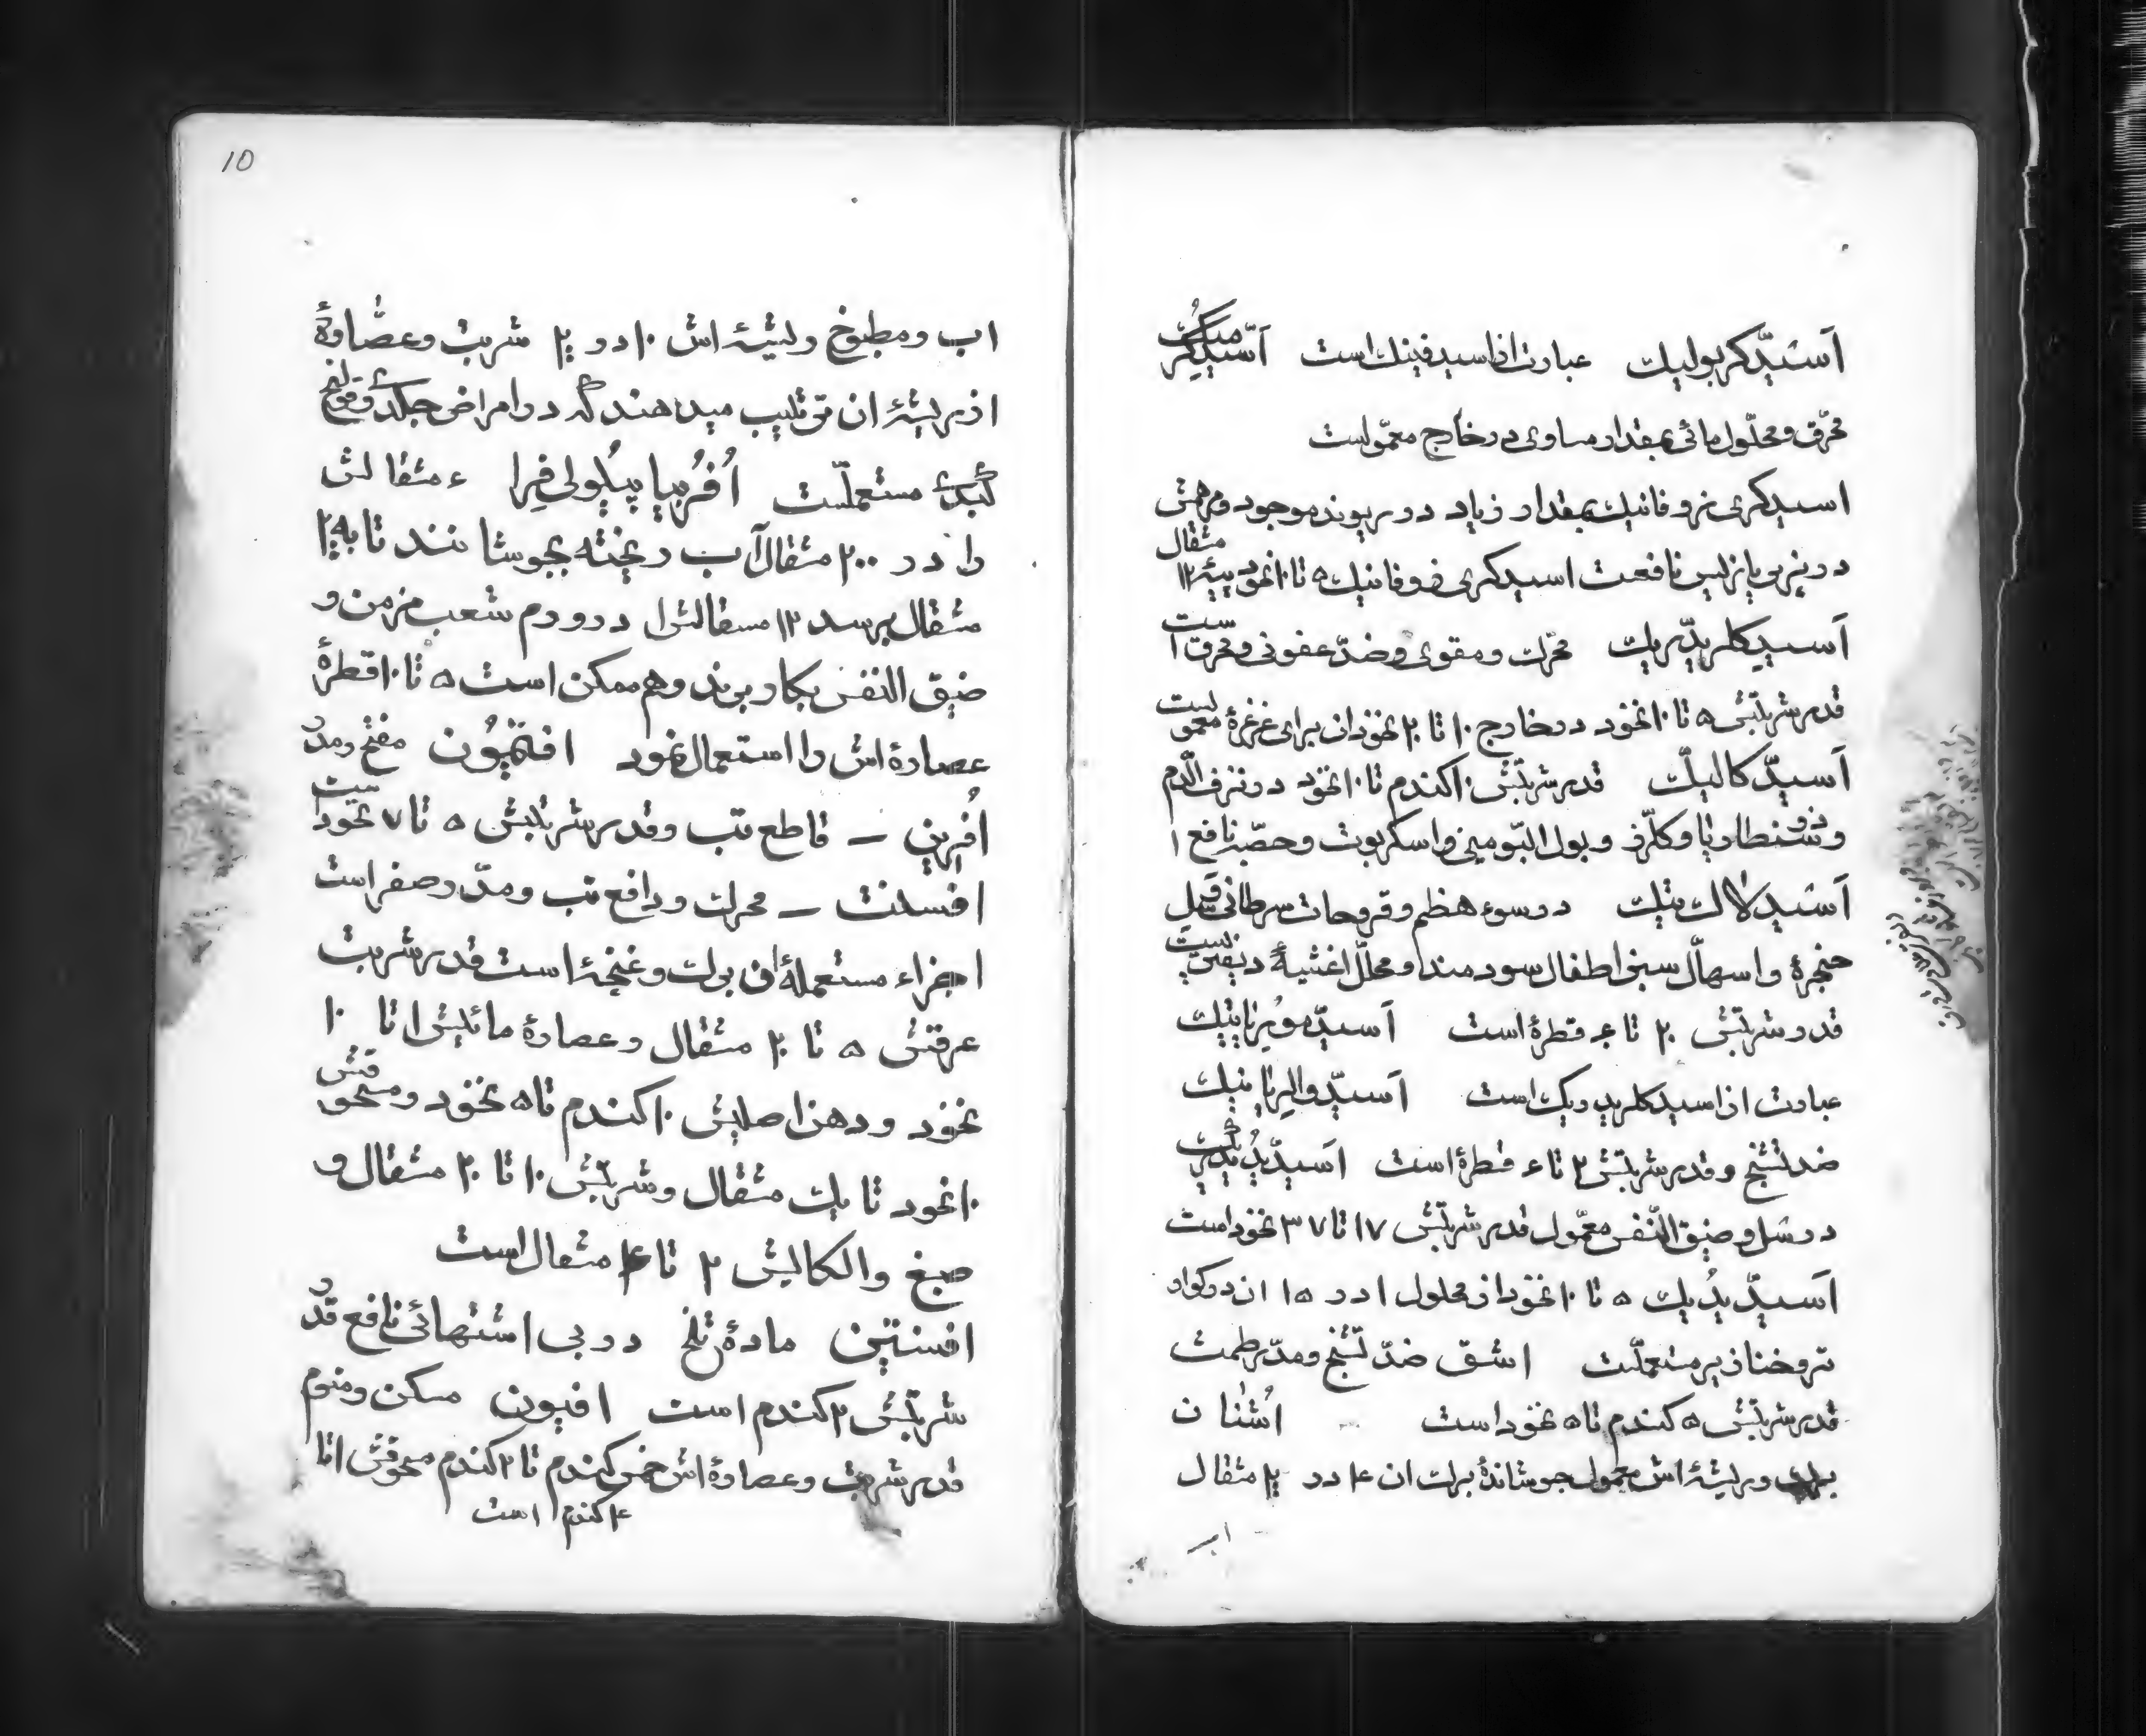 آسیدّ کربولیك عبارت از اسید فینك است آسّید کرُمیك
محرّق و محلّول مائی بمقدار مساوی در خارج معمّولست
اسید کری زوفانیك بمقدار زیاد در ریوند موجود و مرهمش
در پزیریازیس نافعست اسید کری زوفانیك ۵ تا ۱۰ نخود پیه ۱۲ مثقال
آسیدِ کلریدّریك محرّك و مقوی و ضدّ عفونی و محرق است
قدر شربتش ۵ تا ۱۰ نخود در خارج ۱۰ تا ۲۰ نخود ان برای غرغرهٔ معمولست
آسیدّ کالیكّ قدر شربتش ۱۰ کندم تا ۱۰ نخود در نزف الدّم
و ذوسنطاریا و کلّرز و بول البّومینی و اسکربوت و حصبّه نافع ا
آسَید لاك تیك در سوء هظم و قروحات سرطانی و سِل
حنجرهٔ و اسهالّ سبز اطفال سودمند و محللّ اغشیهٔ دیفتریتیست
قدر شربتش ۲۰ تا ۴۰ قطرهٔ است آسیدّ مویُریاتیك
عبارت از اسید کلریدریك است آسیدّ والِریانیك
ضد تشنج و قدر شربتش ۲ تا ۴ قطرهٔ است آسیدّ یُدیدریك
در سَل و ضیق النّفس معمّول قدر شربتش ۱۷ تا ۳۷ نخود است
آسیدّ یُدیك ۵ تا ۱۰ نخود از محلول ۱ در ۱۵ ان در کواد
تر و خنازیر مستعملّست اشق ضدّ تشنج و مدّر طمث
قدر شربتش ۵ کندم تا ۵ نخود است اُشنان
برك و ریشهٔ اش معمول جوشاندهٔ برك ان ۴ در ۲۰ مثقال
اب
10
اب و مطبوخ ریشهٔ اش ۱۰ در ۲۰ شربت و عصّارهٔ
از ریشهٔ ان ترتیب میدهند که در امراض جلدی و قولنج
کبدی مستعملّست اُفُربیا پیلُولی فِرا ۴ مثقالش
را در ۲۰۰ مثقال آب ریخته بجوشانند تا به
مثقال برسد ۱۲ مسقالش را در ورم شعب مزمن و
ضیق النفس بکار برند و هم ممکن است ۵ تا ۱۰ قطرهٔ
عصارهٔ اش را استعمال نمود افتیمُون مفتح و مدّر
اُفِرین – قاطع تب و قدر شربتش ۵ تا ۷ نخود یست
افسنت – محرك و دافع تب و مدّر صفر است
اجزاء مستعملهٔ ان برك و غنچهٔ است قدر شربت
عرقش ۵ تا ۲۰ مثقال و عصارهٔ مائیش ۱ تا ۱۰
نخود و دهن اصلیش ۱۰ کندم تا ۵ نخود و مسحوقش
۱۰ نخود تا یك مثقال و شربتش ۱۰ تا ۲۰ مثقال و
صبغ والکالیش ۲ تا ۴ مثقال است
افسنتین مادهٔ تلخ در بی اشتهائی نافع قدر
شربتش ۲ کندم است افیون مسکن و منوم
قدر شربت و عصارهٔ اش خمس کندم تا ۲ کندم مسحوقش ۱ تا
۴ کندم است